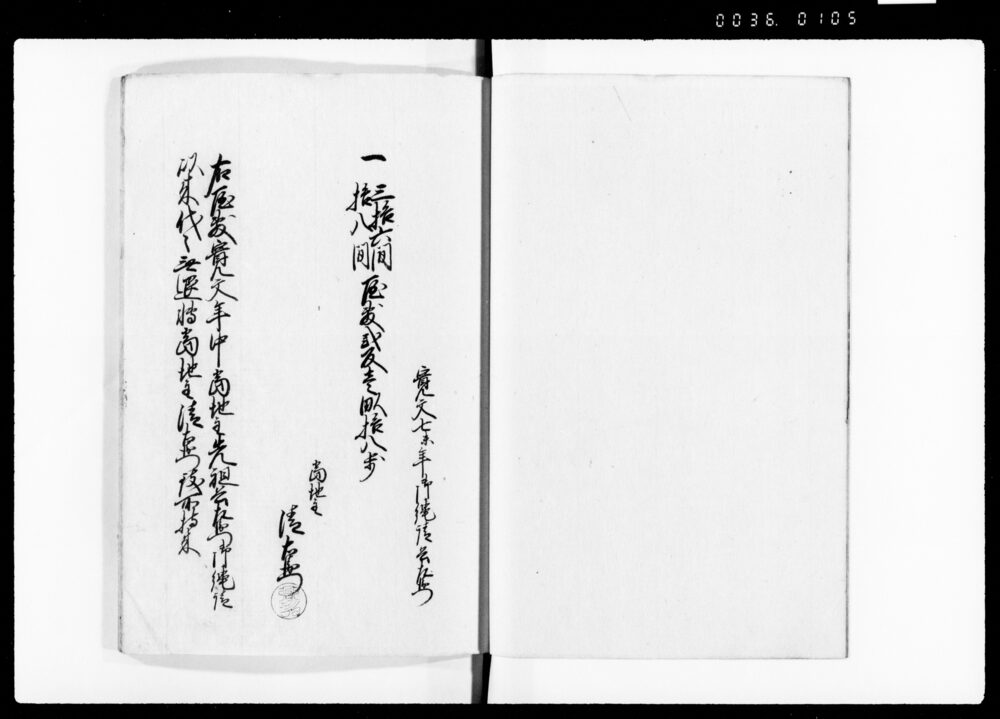 0036. 0105
寛文七未年御縄請 
一 三拾六間
拾八間 屋敷弐反壱畝拾八歩
当地主
清右衛門
右屋敷寛文年中当地主先祖 御縄請
以来代々無退転当地主清右衛門 所持来